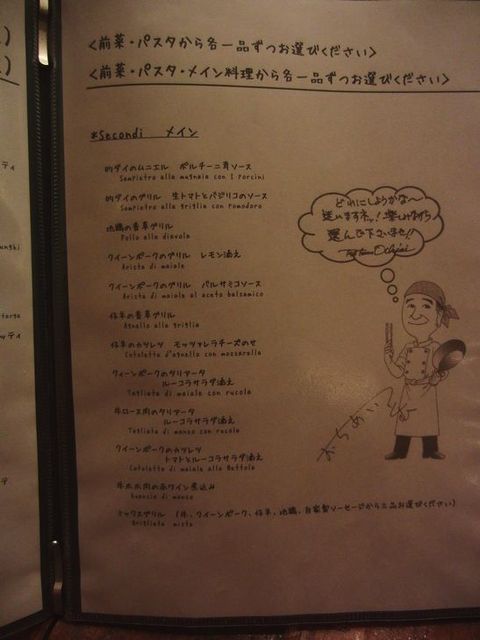 <前菜・パスタから各一品ずつお選びください>
<前菜・パスタ・メイン料理から各一品ずつお選びください>
*Secondi メイン
的ダイのムニエル ポルチーニ茸ソース
Sampietro alla mugnaia con i Porcini
的ダイのグリル 生トマトとバジリコのソース
Sampietro alla griglia con Pomodoro
地鶏の香草グリル
Pollo alla diavola
クイーンポークのグリル レモン添え
Arista di maiale
クイーンポークのグリル バルサミコソース
Arista di maiale al aceto balsamico
仔羊の香草グリル
Agnello alla griglia
仔羊のカツレツ モッツァレラチーズのせ
Cotoletta d'agnello con mozzarella
クイーンポークのタリアータ
ルーコラサラダ添え
Tagliata di maiale con rucola
牛ロース肉のタリアータ
ルーコラサラダ添え
Tagliata di manzo con rucola
クイーンポークのカツレツ
トマトとルーコラサラダ添え
Cotoletta di maiale alla Bettola
牛ホホ肉の赤ワイン煮込み
di manzo
ミックスグリル (牛、クイーンポーク、仔羊、地鶏、自家製ソーセージから三品お選びください)
Grigliata mista
どれにしようかな〜
迷いますネッ!楽しみながら
選んで下さいませ!!
おちあいつとむ